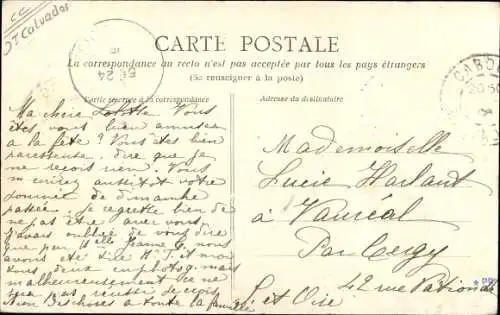 DT Calvados
CARTE POSTALE
La correspondance au recto n'est pas acceptée par tous les pays étrangers
(Se renseigner à la poste)
Partie réservée à la correspondance
Adresse du destinataire
24
CABO
Ma chère Lolotte Vous
êtes vous bien amusée
a la fête? Vous êtes bien
paresseuse, dire que je
ne reçois rien. Vous
aussitôt votre
journée de dimanche
passée. Je regrette bien de
ne pas être avec vous
J'avais oublié de vous dire
que par Melle Jeanne G. nous
avons été
tous deux mais
malheureusement
pas
Bien Des choses a toute la famille
Mademoiselle
Lucie Harlant
à Vauréal
Par Cergy
42 rue Nationale
S. et Oise